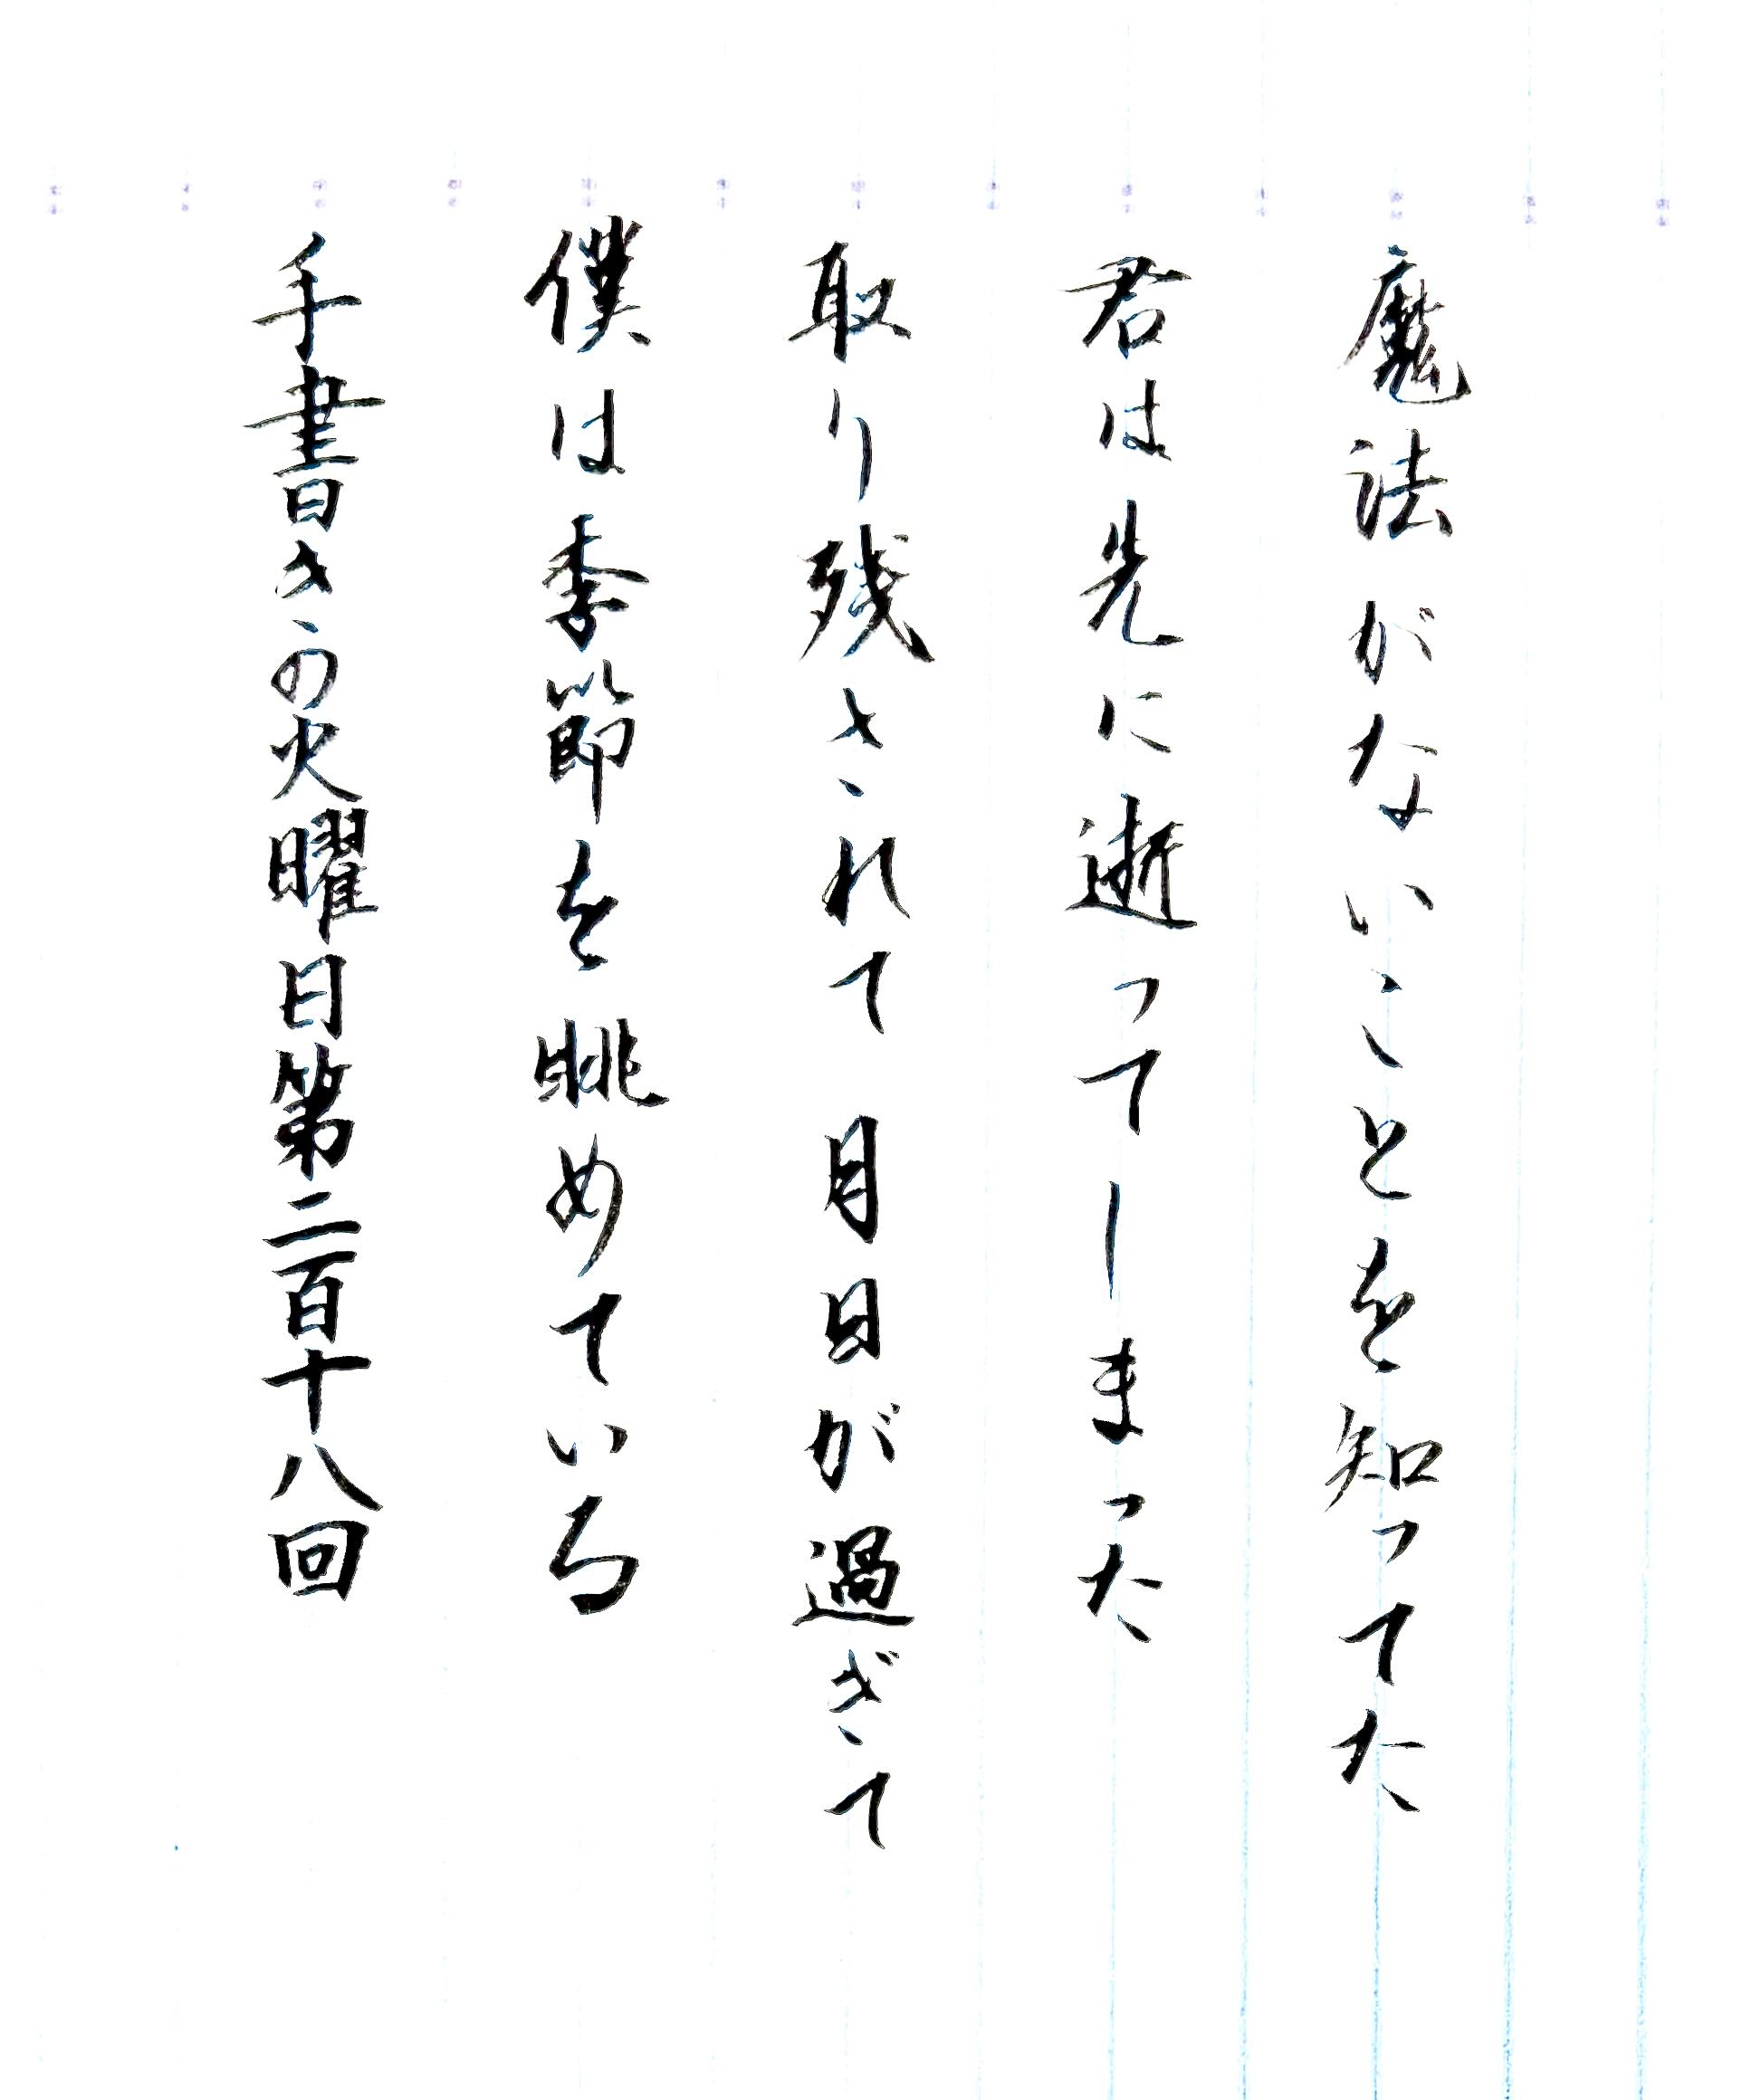 魔法がないことを知ってた
君は先に逝ってしまった
取り残されて月日が過ぎて
僕は季節を眺めている
手書きの火曜日第二百十八回